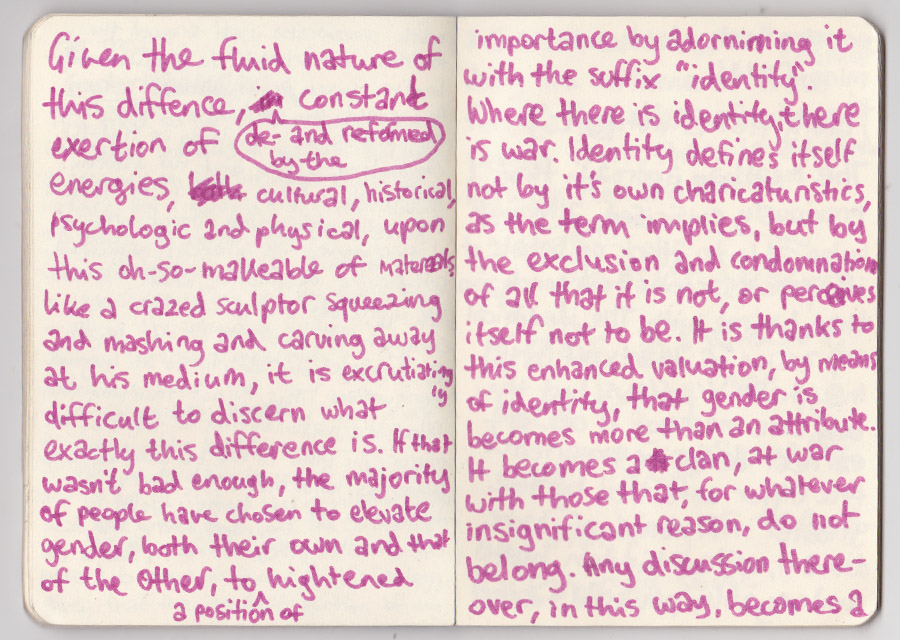 Given the fluid nature of
this diffence, constant
exertion of de- and reformed
by the
energies, cultural, historical,
psychologic and physical, upon
this oh-so-malleable of materials,
like a crazed sculptor squeezing
and mashing and carving away
at his medium, it is excrutiating
ly
difficult to discern what
exactly this difference is. If that
wasn't bad enough, the majority
of people have chosen to elevate
gender, both their own and that
of the Other, to hightened
a position of
importance by adornirning it
with the suffix "identity".
Where there is identity, there
is war. Identity defines itself
not by it's own charicaturistics,
as the term implies, but by
the exclusion and condomnation
of all that it is not, or perceives
itself not to be. It is thanks to
this enhanced valuation, by means
of identity, that gender is
becomes more than an attribute.
It becomes a clan, at war
with those that, for whatever
insignificant reason, do not
belong. Any discussion there-
over, in this way, becomes a